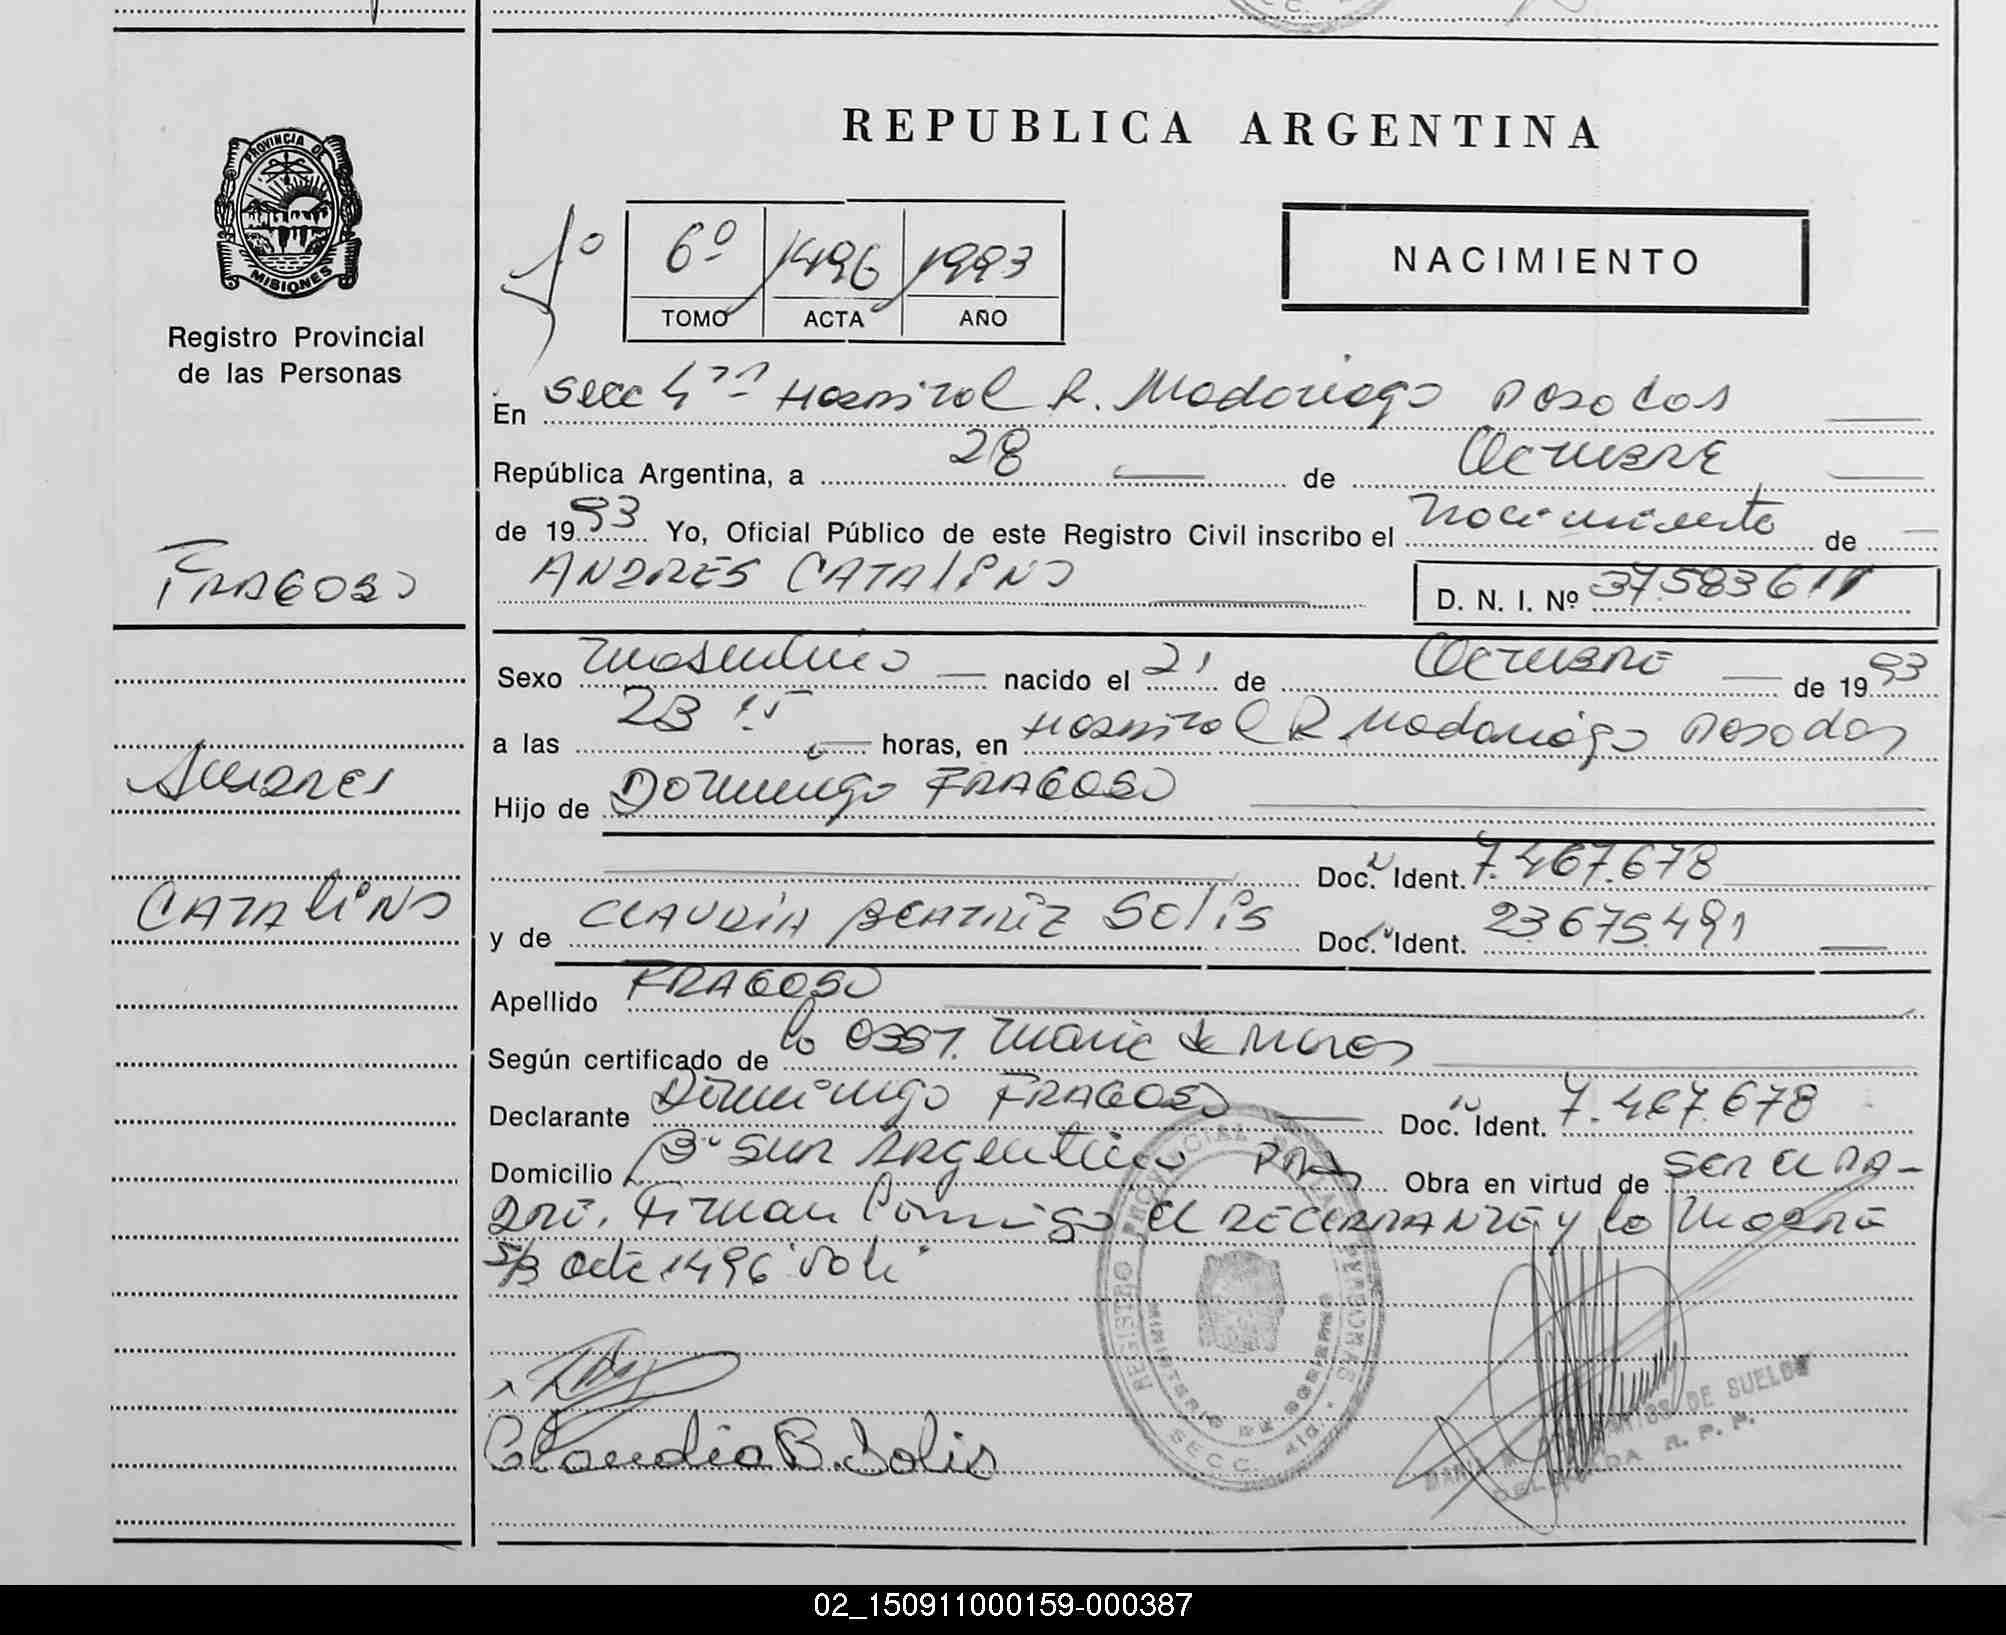 REPUBLICA ARGENTINA
PROVINCIA DE
MISIONES
Registro Provincial
de las Personas
1º
6º 1496 1993
TOMO ACTA AÑO
NACIMIENTO
En Secc 4ta Hospital R. Madariaga Posadas
República Argentina, a 28 de Octubre
de 1993 Yo, Oficial Público de este Registro Civil inscribo el nacimiento de
ANDRES CATALINO
D. N. I. Nº 37.583.611
FRAGOSO
Sexo masculino nacido el 21 de Octubre de 1993
a las 23 15 horas, en Hospital R Madariaga Posadas
Andres
Hijo de Domingo FRAGOSO
Doc. Ident. 7.467.678
CATALINO
y de CLAUDIA BEATRIZ SOLIS Doc. Ident. 23.675.491
Apellido FRAGOSO
Según certificado de la Obst. Maria de
Declarante Domingo FRAGOSO Doc. Ident. 7.467.678
Domicilio Bº Sur Argentino Pdas Obra en virtud de ser el pa-
dre. Firman Conmigo el declarante y la madre
S/B acta 1496 vale
Claudia B. Solis
REGISTRO PROVINCIAL DE LAS PERSONAS
MINISTERIO DE GOBIERNO
SECC.
DE SUELDOS
DELEGADA R. P. P.
02_150911000159-000387